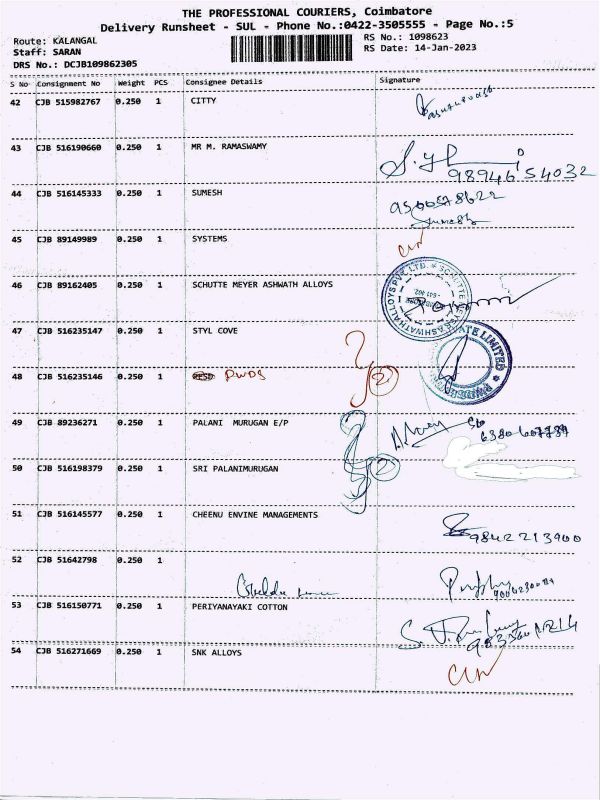 THE PROFESSIONAL COURIERS, Coimbatore
Delivery Runsheet - SUL - Phone No.:0422-3505555 - Page No.:5
Route: KALANGAL
Staff: SARAN
DRS No.: DCJB109862305
RS No.: 1098623
RS Date: 14-Jan-2023
S No Consignment No Weight PCS Consignee Details Signature
42 CJB 515982767 0.250 1 CITTY
43 CJB 516190660 0.250 1 MR M. RAMASWAMY
9894654032
44 CJB 516145333 0.250 1 SUMESH
9500578622
45 CJB 89149989 0.250 1 SYSTEMS
46 CJB 89162405 0.250 1 SCHUTTE MEYER ASHWATH ALLOYS
47 CJB 516235147 0.250 1 STYL COVE
48 CJB 516235146 0.250 1 PWDS
2
49 CJB 89236271 0.250 1 PALANI MURUGAN E/P
50 CJB 516198379 0.250 1 SRI PALANIMURUGAN
2
51 CJB 516145577 0.250 1 CHEENU ENVINE MANAGEMENTS
9842213900
52 CJB 51642798 0.250 1
53 CJB 516150771 0.250 1 PERIYANAYAKI COTTON
54 CJB 516271669 0.250 1 SNK ALLOYS